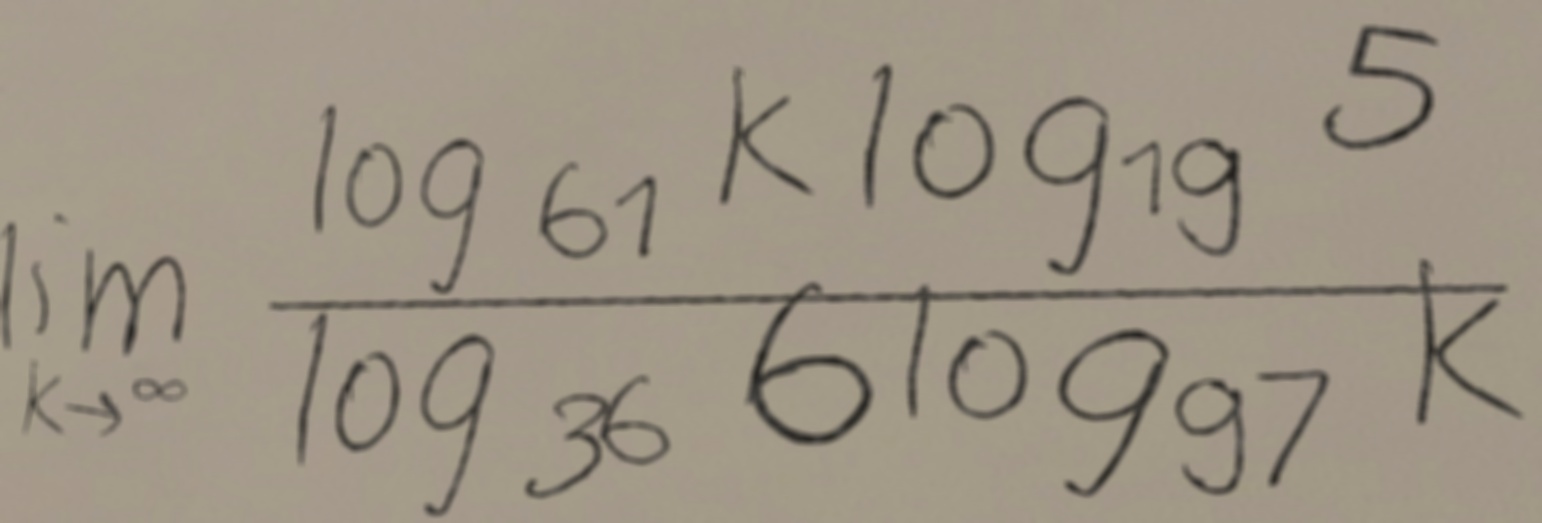 lim k→∞ \frac{log_{61} k log_{19} 5}{log_{36} 6 log_{97} k}